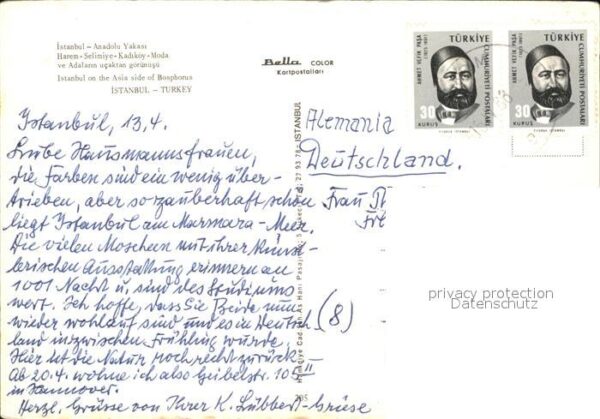 İstanbul - Anadolu Yakası
Harem - Selimiye - Kadıköy - Moda
ve Adaların uçaktan görünüşü
Istanbul on the Asia side of Bosphorus
İSTANBUL - TURKEY
Bella COLOR
Kartpostalları
TÜRKİYE
AHMET VEFİK PAŞA
TÜRKİYE CUMHURİYETİ POSTALARI
30
KURUŞ
TÜRKİYE
AHMET VEFİK PAŞA
CUMHURİYETİ POSTALARI
30
KURUŞ
Istanbul, 13.4.
Liebe Hausmannsfrauen,
die Farben sind ein wenig über-
trieben, aber so zauberhaft schön
liegt Istanbul am Marmara-Meer.
Die vielen Moscheen mit ihrer künst-
lerischen Ausstattung erinnern an
1001 Nacht u. sind des Studiums
wert. Ich hoffe, dass Sie Beide nun
wieder wohlauf sind und es in Deutsch
land inzwischen Frühling wurde.
Hier ist die Natur noch recht zurück.
Ab 20.4. wohne ich also Geibelstr. 105 II
in Hannover.
Herzl. Grüsse von Ihrer K. Lübbert-Griese
Alemania
Deutschland.
Frau
(8)
27 93 78 - İSTANBUL
privacy protection
Datenschutz